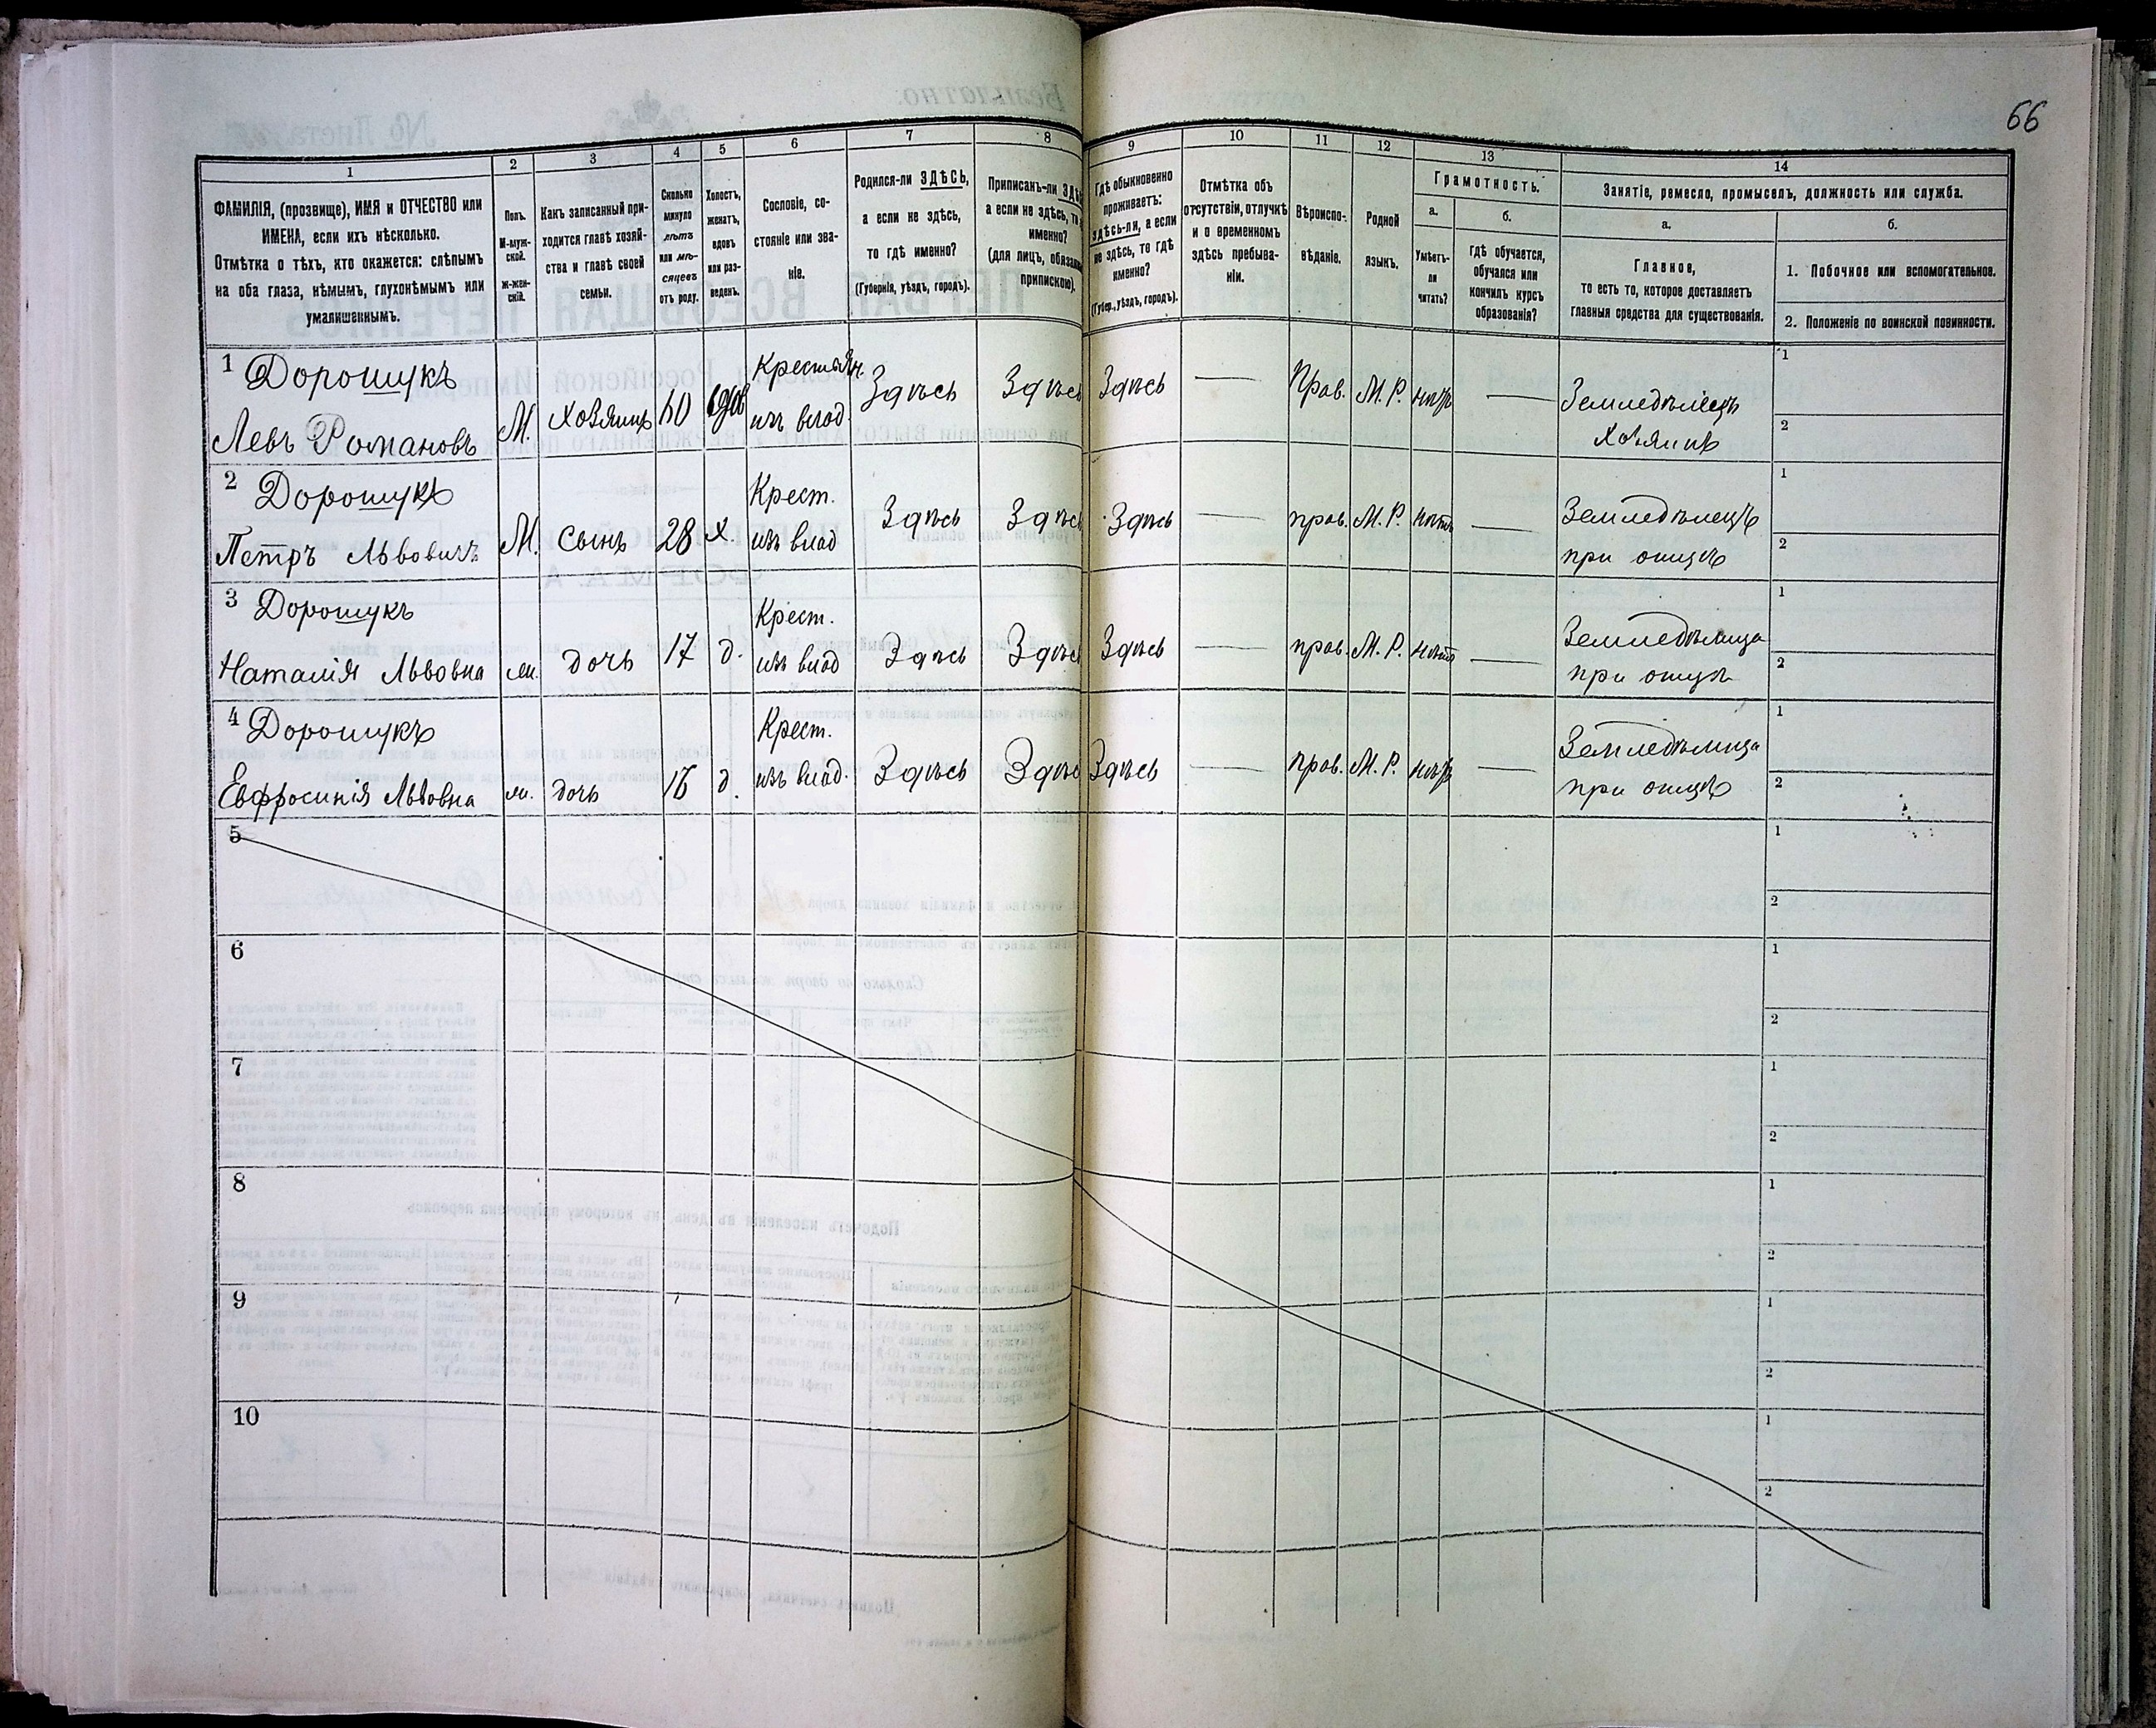 66
1
2
3
4
5
6
7
8
9
10
11
12
13
14
ФАМИЛІЯ, (прозвище), ИМЯ и ОТЧЕСТВО или
ИМЕНА, если ихъ нѣсколько.
Отмѣтка о тѣхъ, кто окажется: слѣпымъ
на оба глаза, нѣмымъ, глухонѣмымъ или
умалишеннымъ.
Полъ.
М-муж-
ской.
Ж-жен-
скій.
Какъ записанный при-
ходится главѣ хозяй-
ства и главѣ своей
семьи.
Сколько
минуло
лѣтъ
или мѣ-
сяцевъ
отъ роду.
Холостъ,
женатъ,
вдовъ
или раз-
веденъ.
Сословіе, со-
стояніе или зва-
ніе.
Родился-ли ЗДѢСЬ,
а если не здѣсь,
то гдѣ именно?
(Губернія, уѣздъ, городъ).
Приписанъ-ли
а если не здѣсь, то
именно?
(для лицъ,
припискою).
Гдѣ обыкновенно
проживаетъ:
здѣсь-ли, а если
не здѣсь, то гдѣ
именно?
(Губер., уѣздъ, городъ).
Отмѣтка объ
отсутствіи, отлучкѣ
и о временномъ
здѣсь пребыва-
ніи.
Вѣроиспо-
вѣданіе.
Родной
языкъ.
Грамотность.
а.
Умѣетъ-
ли
читать?
б.
гдѣ обучается,
обучался или
кончилъ курсъ
образованія?
Занятіе, ремесло, промыселъ, должность или служба.
а.
Главное,
то есть то, которое доставляетъ
главныя средства для существованія.
б.
1. Побочное или вспомогательное.
2. Положеніе по воинской повинности.
1 Дорошукъ
Левъ Романовъ
М.
Хозяинъ
60
вдов
Крестьян.
изъ влад.
Здѣсь
Здѣсь
Здѣсь
—
Прав.
М. Р.
нѣтъ
—
Земледѣлецъ
Хозяинъ
1
2
2 Дорошукъ
Петръ Львовичъ
М.
Сынъ
28
х.
Крест.
изъ влад
Здѣсь
Здѣсь
Здѣсь
—
прав.
М. Р.
нѣтъ
—
Земледѣлецъ
при отцѣ
1
2
3 Дорошукъ
Наталія Львовна
ж.
дочь
17
д.
Крест.
изъ влад
Здѣсь
Здѣсь
Здѣсь
—
прав.
М. Р.
нѣтъ
—
Земледѣлица
при отцѣ
1
2
4 Дорошукъ
Евфросинія Львовна
ж.
дочь
д.
Крест.
изъ влад.
Здѣсь
Здѣсь
Здѣсь
—
прав.
М. Р.
нѣтъ
—
Земледѣлица
при отцѣ
1
2
5
1
2
6
1
2
7
1
2
8
1
2
9
1
2
10
1
2